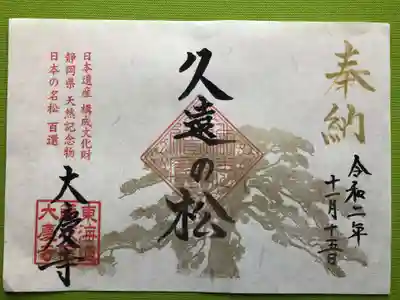 奉納
令和二年
十月十五日
久遠の松
日本遺産 構成文化財
静岡県 天然記念物
日本の名松 百選
大慶寺
東海道
大慶寺